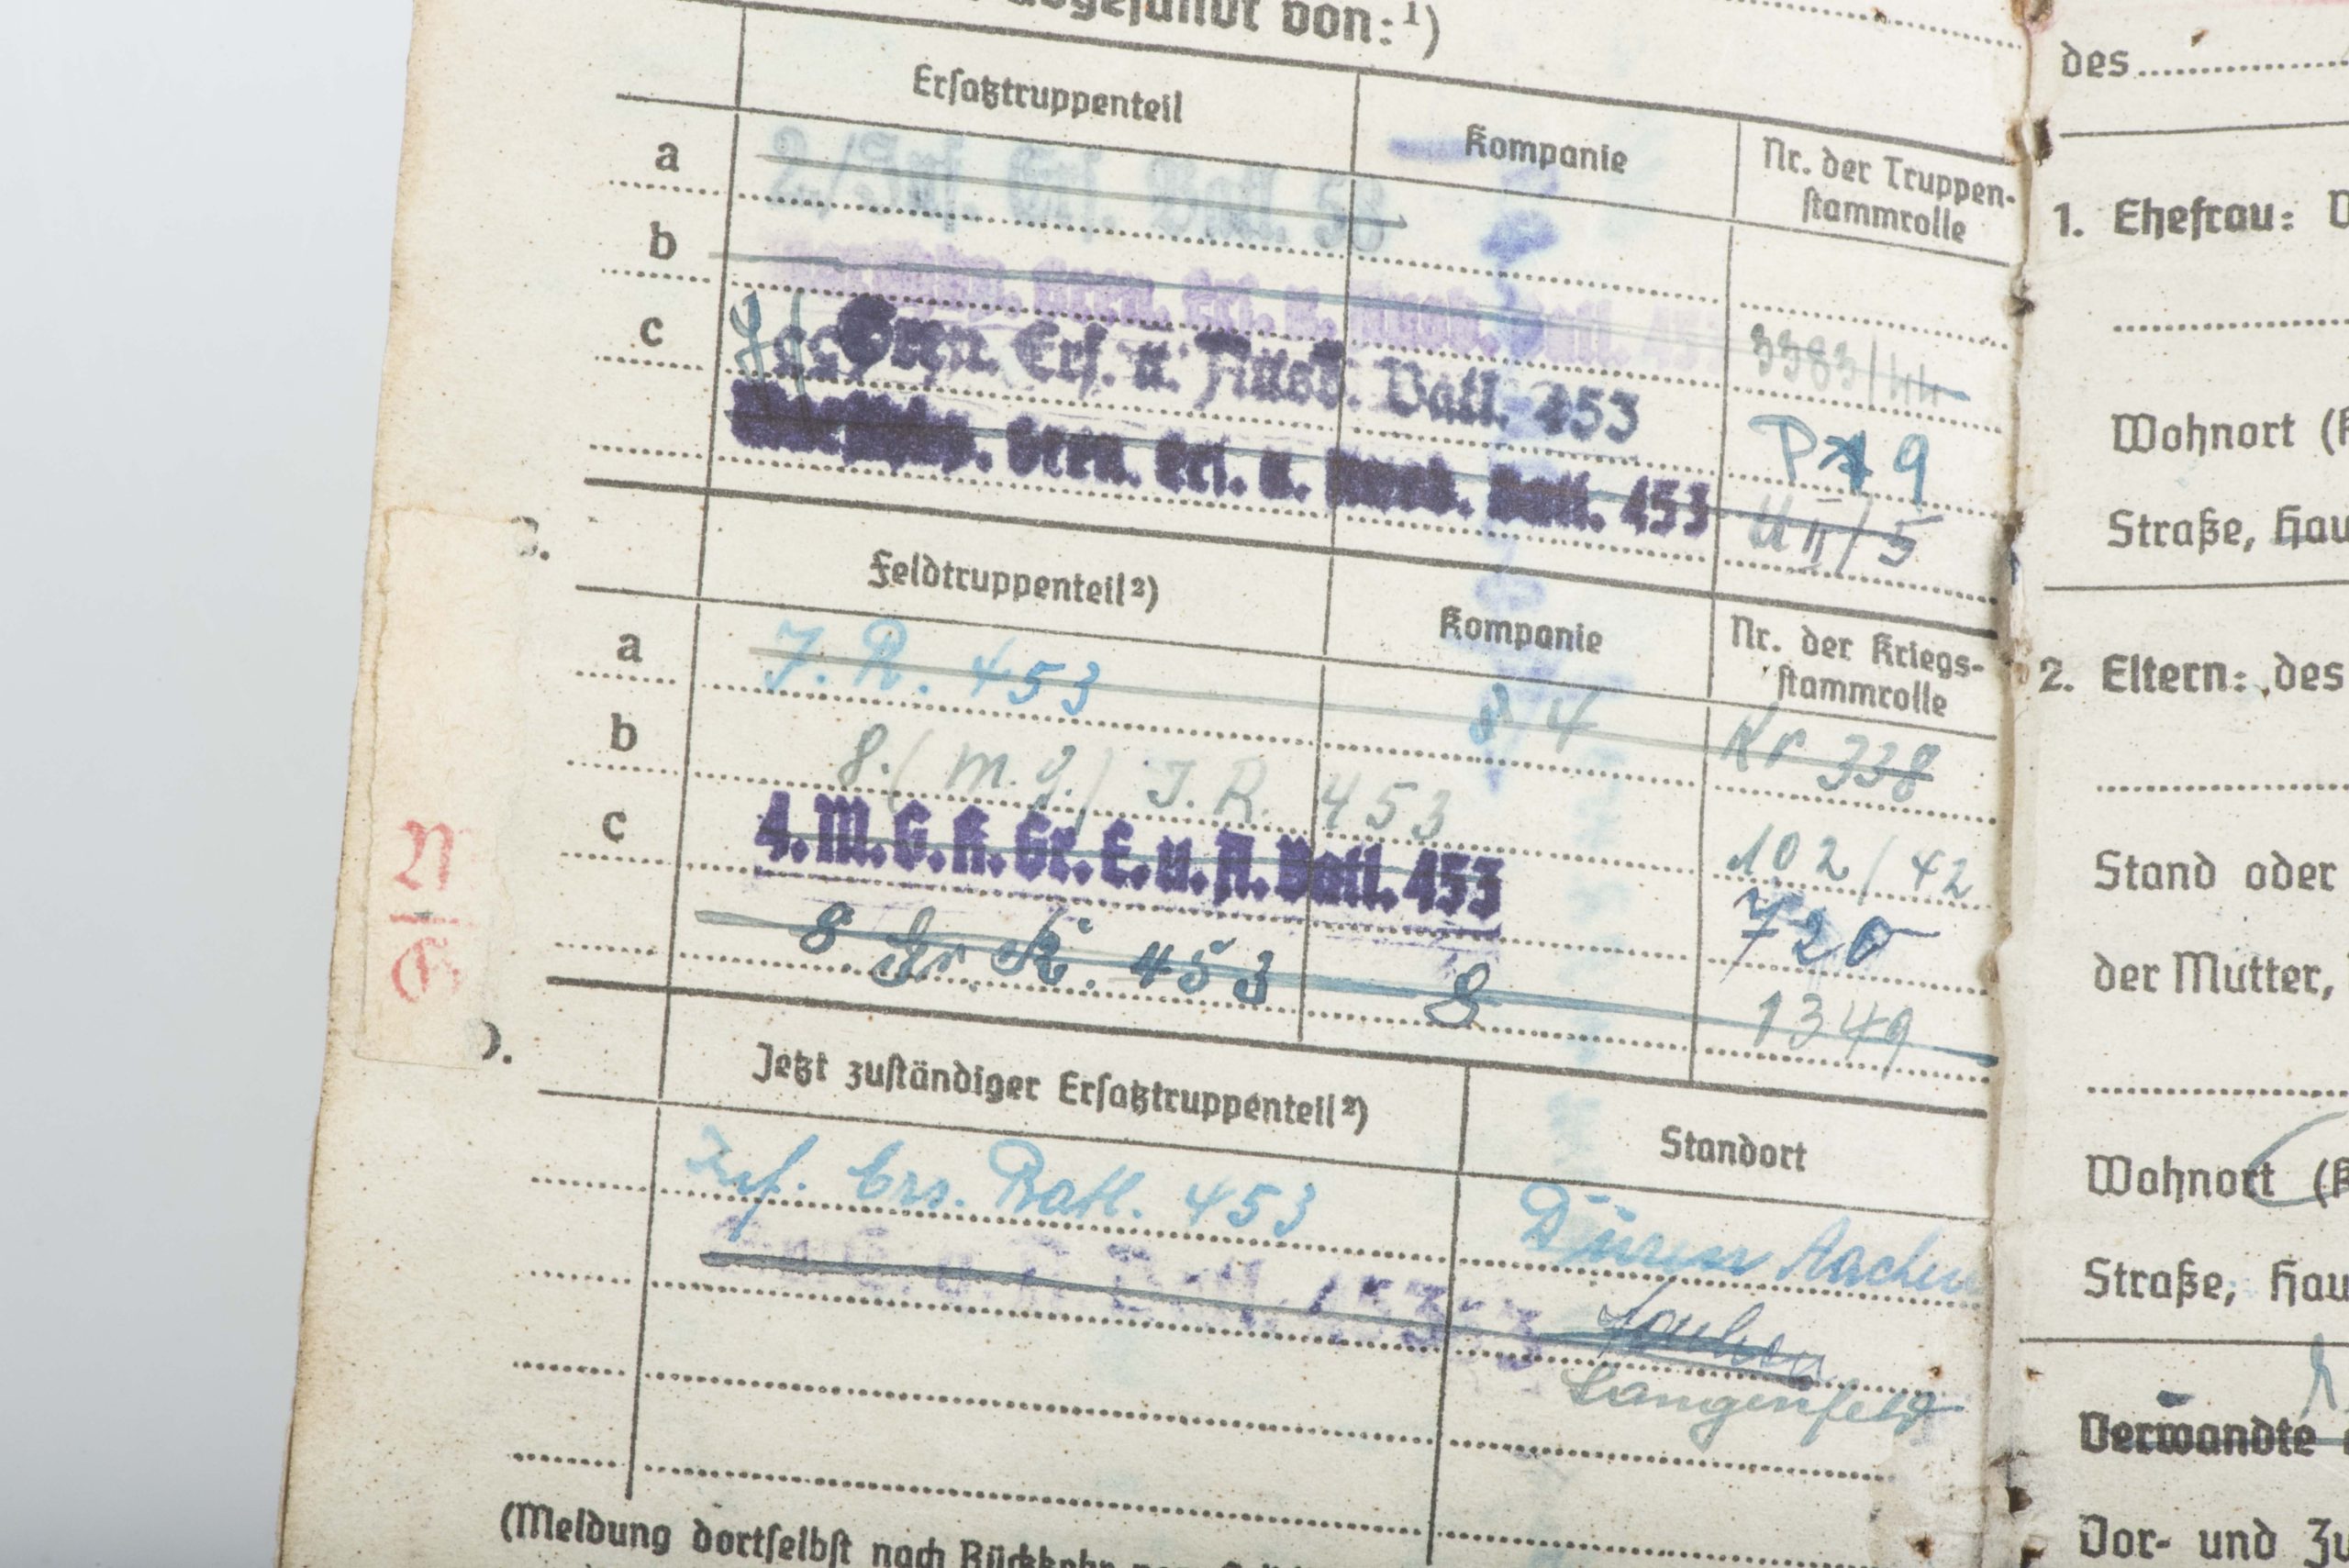 von:¹)
Ersatztruppenteil Kompanie Nr. der Truppen-
stammrolle
a 2./Inf. Ers. Batl. 58
b Gren. Ers. u. Ausb. Batl. 453 3383/44
c Gren. Ers. u. Ausb. Batl. 453 9
Gren. Ers. u. Ausb. Batl. 453 / 5
Feldtruppenteil²) Kompanie Nr. der Kriegs-
stammrolle
a J. R. 453 8 4 Kr 338
b 8. (M. G.) J. R. 453 102/42
c 4. M. G. K. Gr. E. u. A. Batl. 453 720
8 Gr R. 453 8 1349
D.
Jetzt zuständiger Ersatztruppenteil²) Standort
Inf. Ers. Batl. 453 Düren Aachen
E. u. A. Batl. 453
Langenfeld
(Meldung dortselbst nach Rückkehr
N
G
des
1. Ehefrau:
Wohnort
Straße, Hau
2. Eltern: des
Stand oder
der Mutter,
Wohnort
Straße, Hau
Verwandte
Vor- und Zu